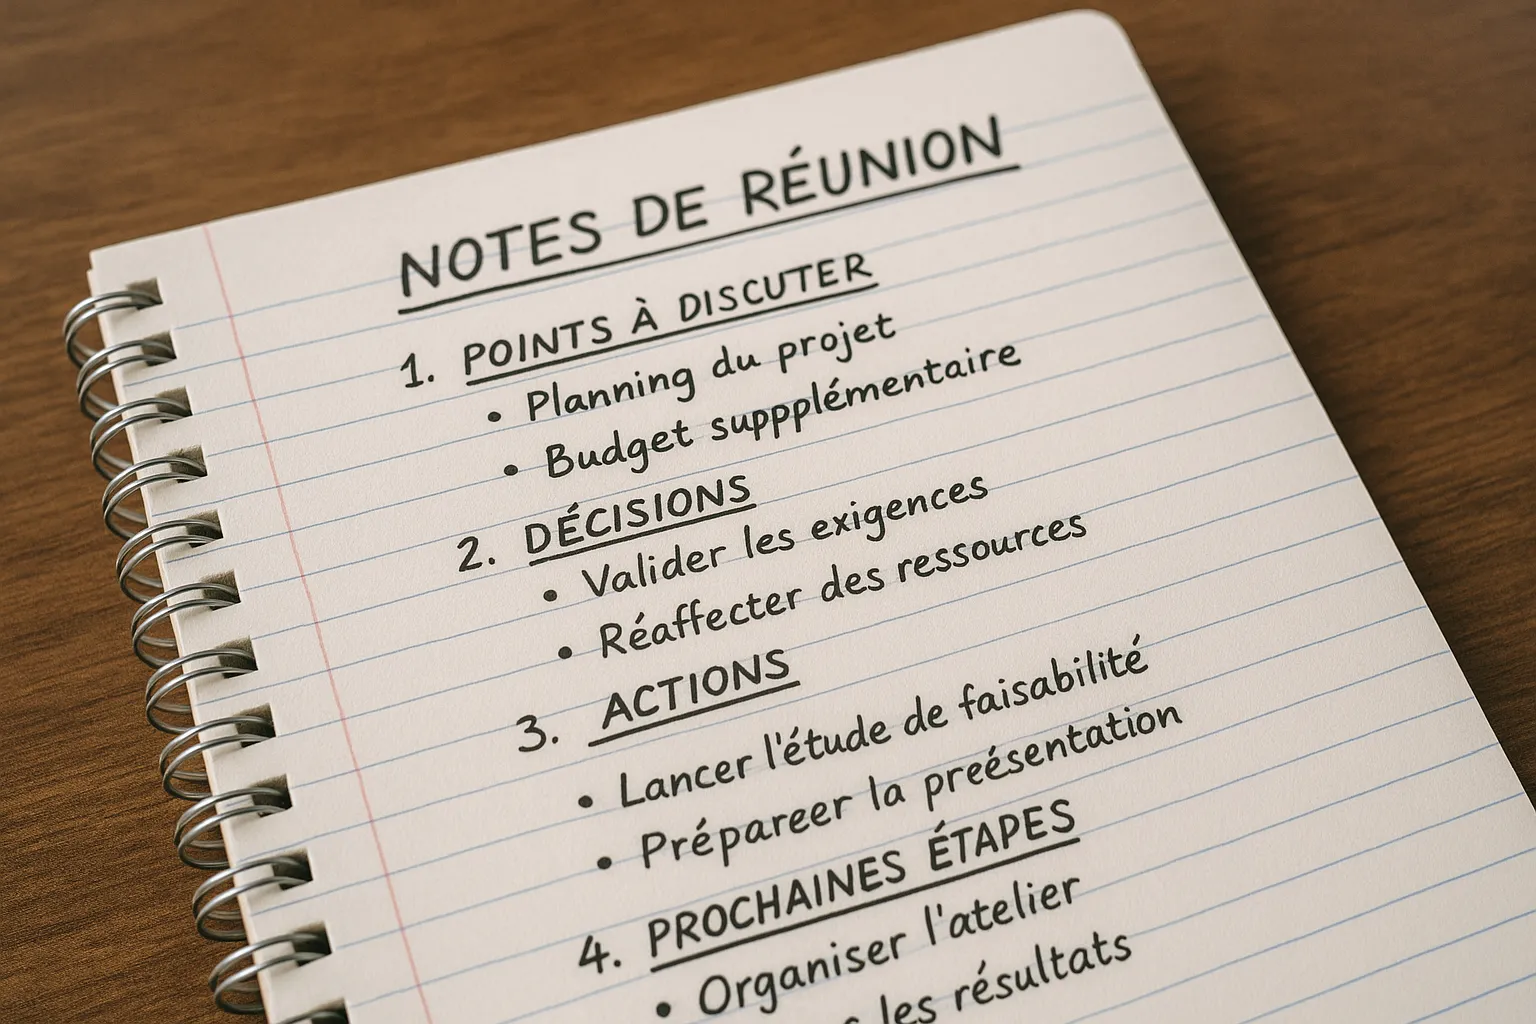 NOTES DE RÉUNION
1. POINTS À DISCUTER
• Planning du projet
• Budget suppplémentaire
2. DÉCISIONS
• Valider les exigences
• Réaffecter des ressources
3. ACTIONS
• Lancer l'étude de faisabilité
• Prépareer la preésentation
4. PROCHAINES ÉTAPES
• Organiser l'atelier
les résultats